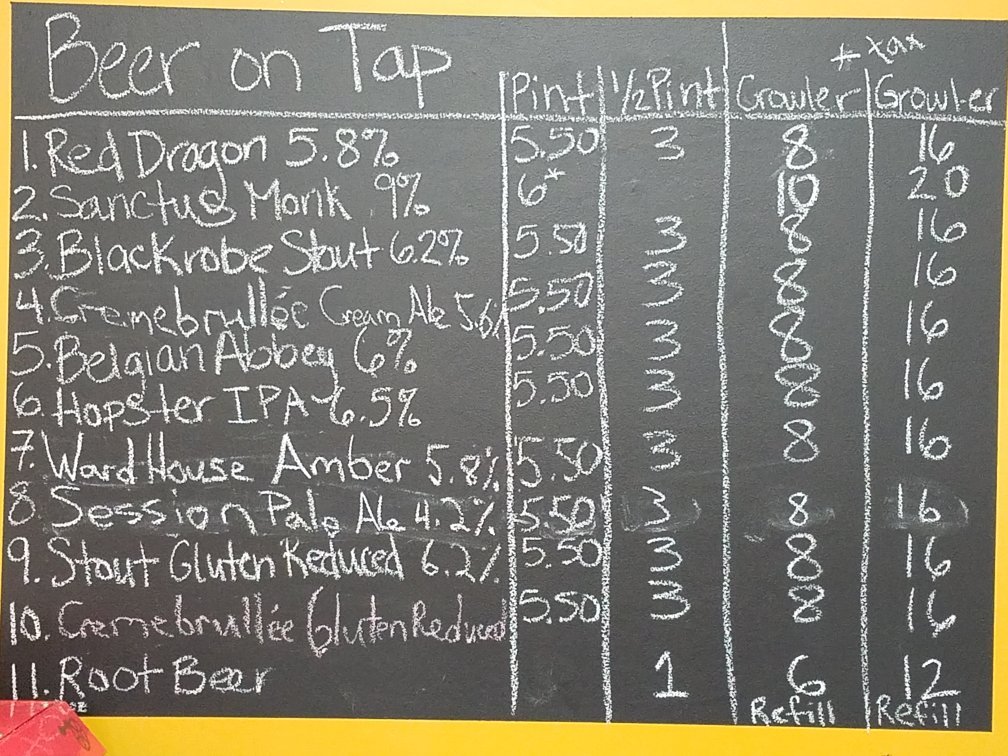 Beer on Tap
+ tax
Pint ½ Pint Crowler Growler
1. Red Dragon 5.8% 5.50 3 8 16
2. Sanctus Monk 9% 6* 10 20
3. Blackrobe Stout 6.2% 5.50 3 8 16
4. Cremebrullée Cream Ale 5.6% 5.50 3 8 16
5. Belgian Abbey 6% 5.50 3 8 16
6. Hopster IPA 6.5% 5.50 3 8 16
7. Ward House Amber 5.8% 5.50 3 8 16
8. Session Pale Ale 4.2% 5.50 3 8 16
9. Stout Gluten Reduced 6.2% 5.50 3 8 16
10. Cremebrullée Gluten Reduced 5.50 3 8 16
11. Root Beer 1 6 12
Refill Refill